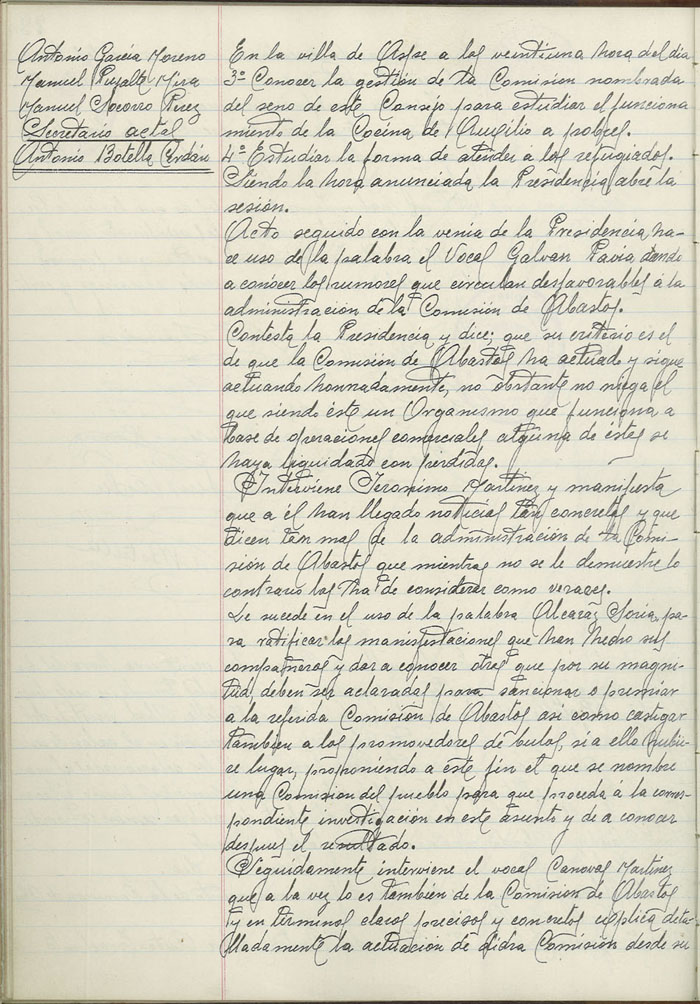 Antonio Garcia Moreno
Manuel Puzalte Mira
Manuel Socorro Perez
Secretario actal
Antonio Botella Cerdán
En la villa de Aspe a los veintiuna hora del dia
3º Conocer la gestión de la Comision nombrada
del seno de este Consejo para estudiar el funciona
miento de la Cocina de Auxilio a pobres.
4º Estudiar la forma de atender a los refugiados.
Siendo la hora anunciada la Presidencia abre la
sesión.
Acto seguido con la venia de la Presidencia, ha-
ce uso de la palabra el Vocal Galvan Pavia dando
a conocer los rumores que circulan desfavorables a la
administración de la Comisión de Abastos.
Contesta la Presidencia y dice; que su criterio es el
de que la Comisión de Abastos ha actuado y sigue
actuando honradamente, no obstante no niega el
que siendo éste un Organismo que funciona a
base de operaciones comerciales alguna de éstas se
haya liquidado con perdidas.
Interviene Jeronimo Martinez y manifiesta
que a él han llegado noticias tan concretas y que
dicen tan mal de la administración de la Comi-
sión de Abastos que mientras no se le demuestre lo
contrario los ha de considerar como veraces.
Le sucede en el uso de la palabra Alcaraz Soria, pa-
ra ratificar las manifestaciones que han hecho sus
compañeros y dar a conocer otras que por su magni-
tud, deben ser aclaradas para sancionar o premiar
a la referida Comisión de Abastos asi como castigar
tambien a los promovedores de bulos, si a ello hubie-
re lugar, proponiendo a este fin el que se nombre
una Comision del pueblo para que proceda á la corres-
pondiente investigación en este asunto y de a conocer
despues el resultado.
Seguidamente interviene el vocal Canovas Martinez
que a la vez lo es tambien de la Comision de Abastos
y en terminos claros precisos y concretos explica deta-
lladamente la actuación de dicha Comisión desde su